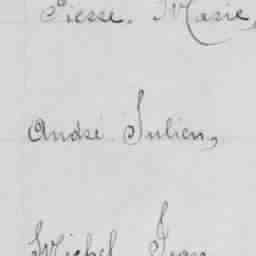 Pierre. Marie,
André Julien,
Michel Jean